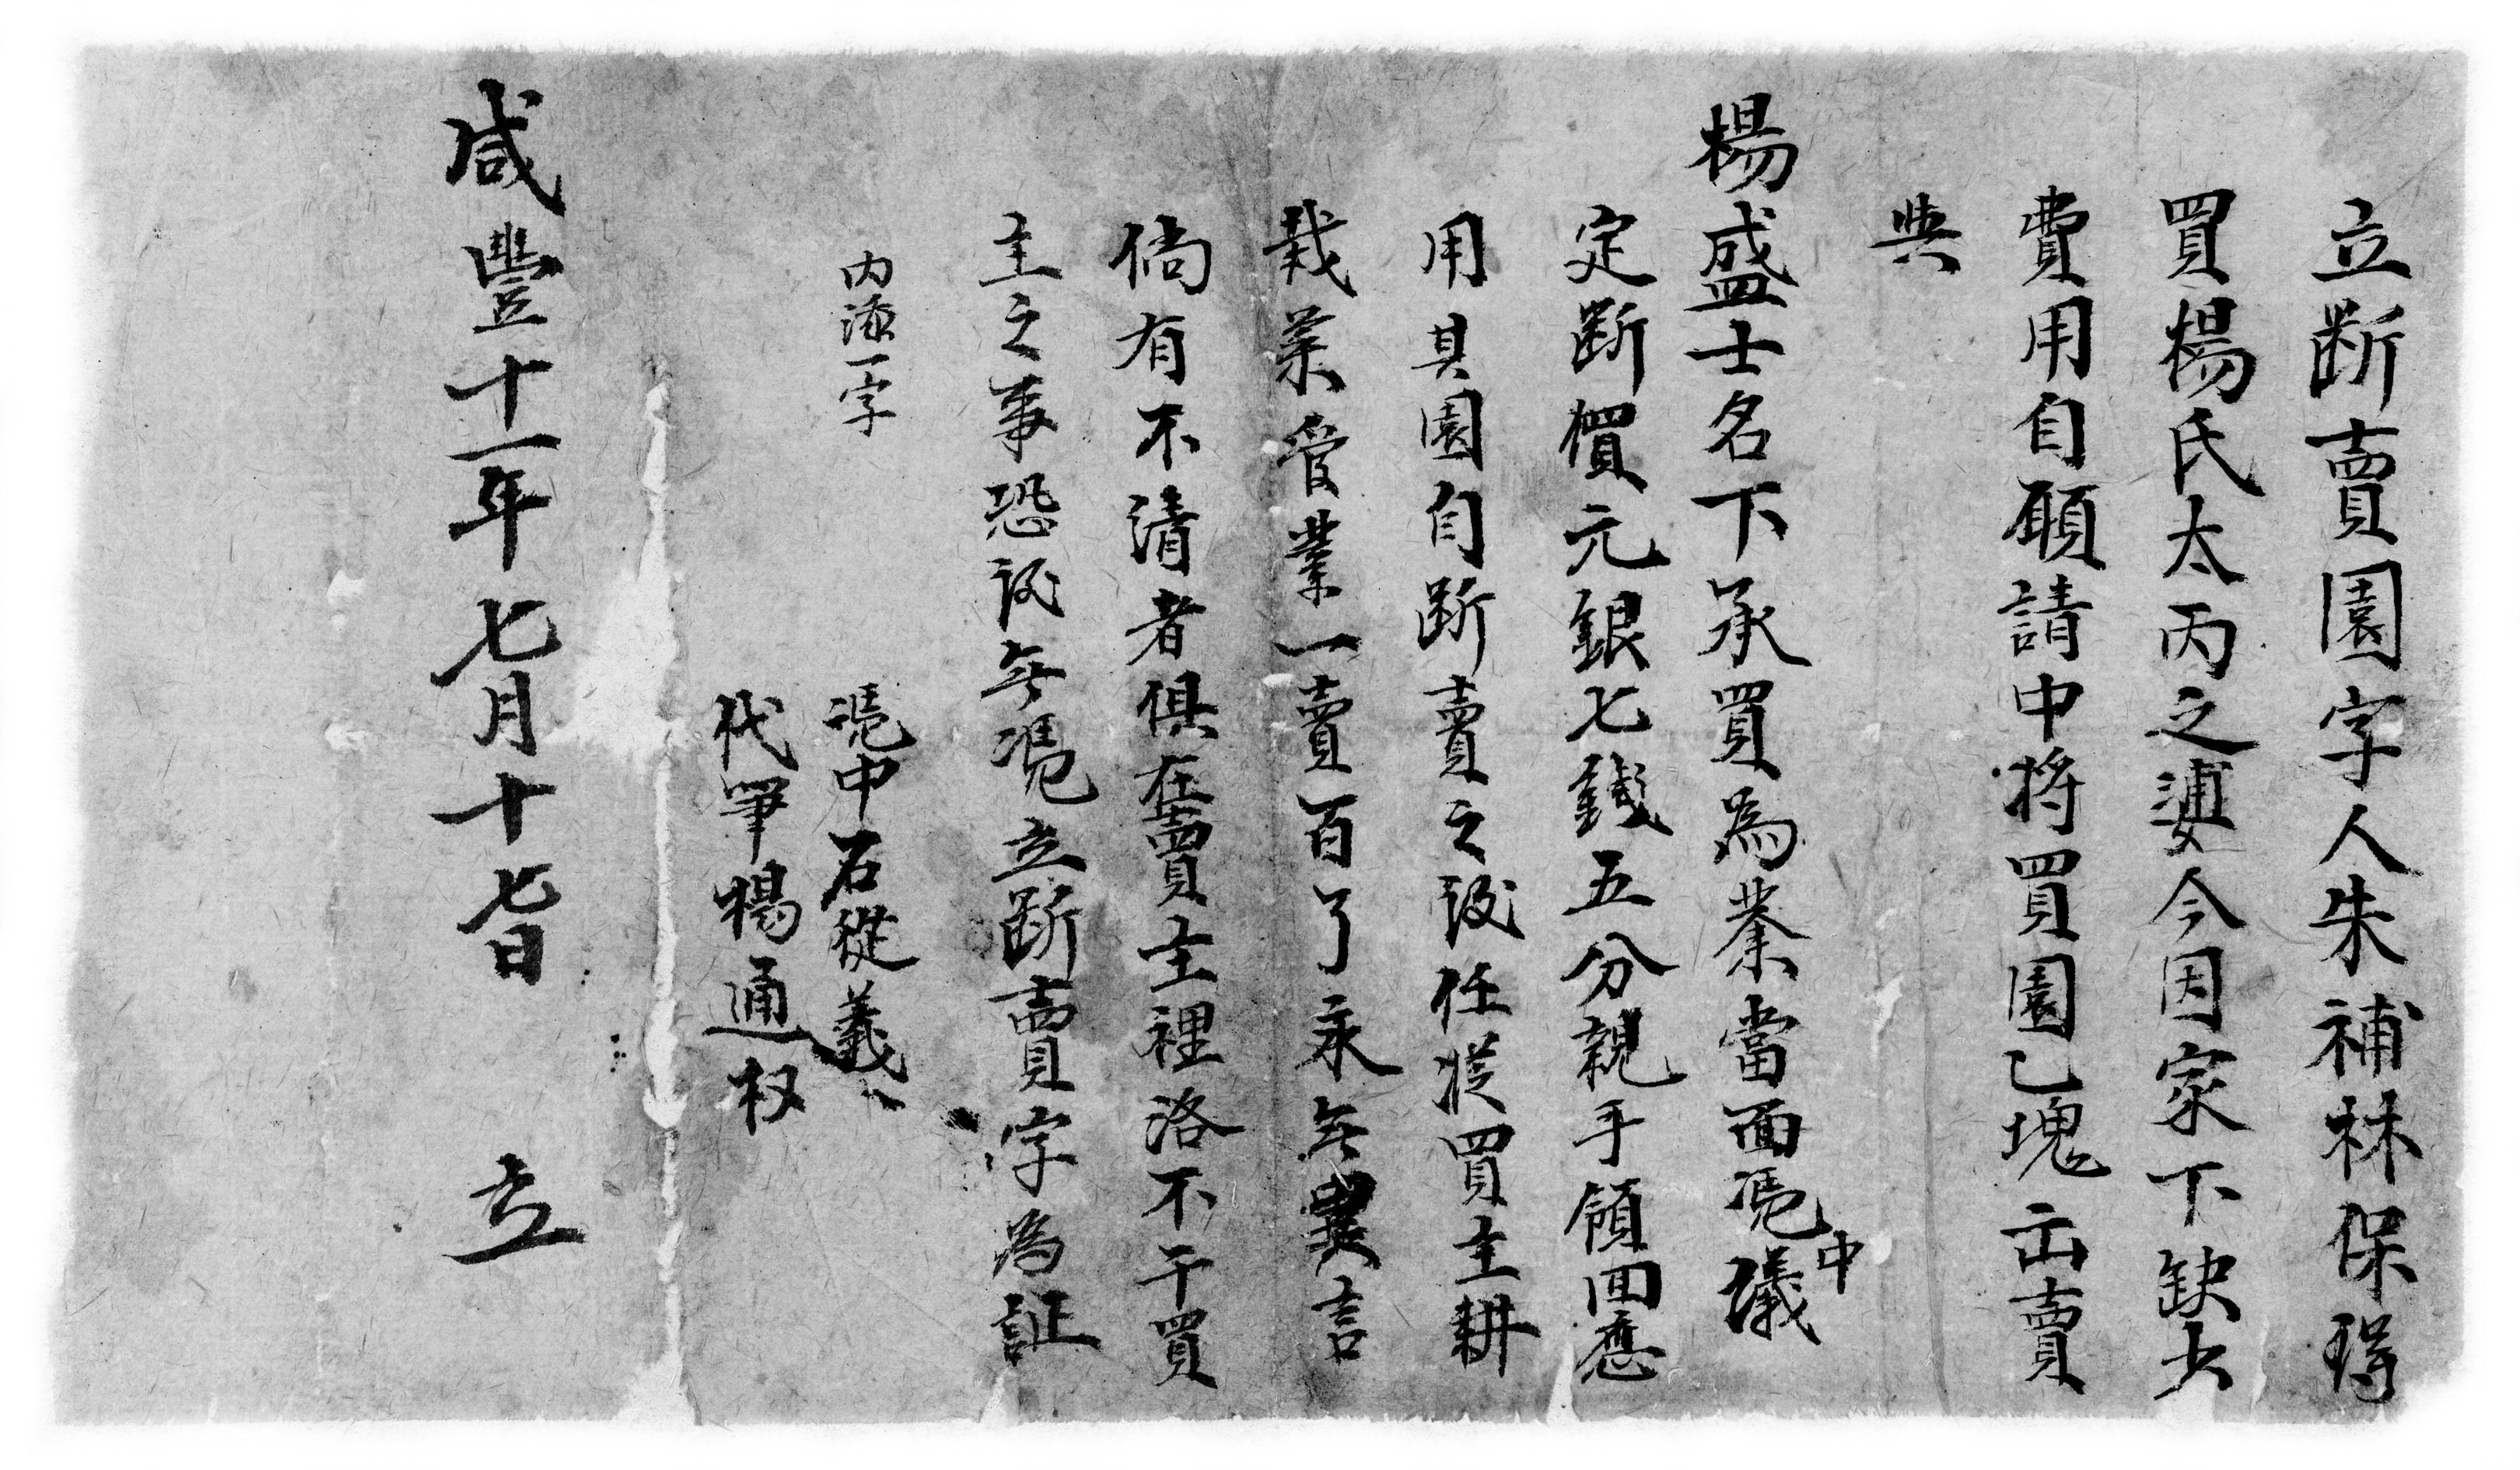 立断賣園字人朱補林保得
買楊氏太丙之婆今因家下缺少
費用自願請中将買園乙塊出賣
與
楊盛士名下承買為業當面憑中議
定断價元銀七錢五分親手領回應
用其園自断賣之後任從買主耕
栽業管業一賣百了永無異言
倘有不清者俱在賣主裡洛不干買
主之事恐後無憑立断賣字為証
内添一字
憑中石從義
代筆楊通权
咸豐十一年七月十七日立